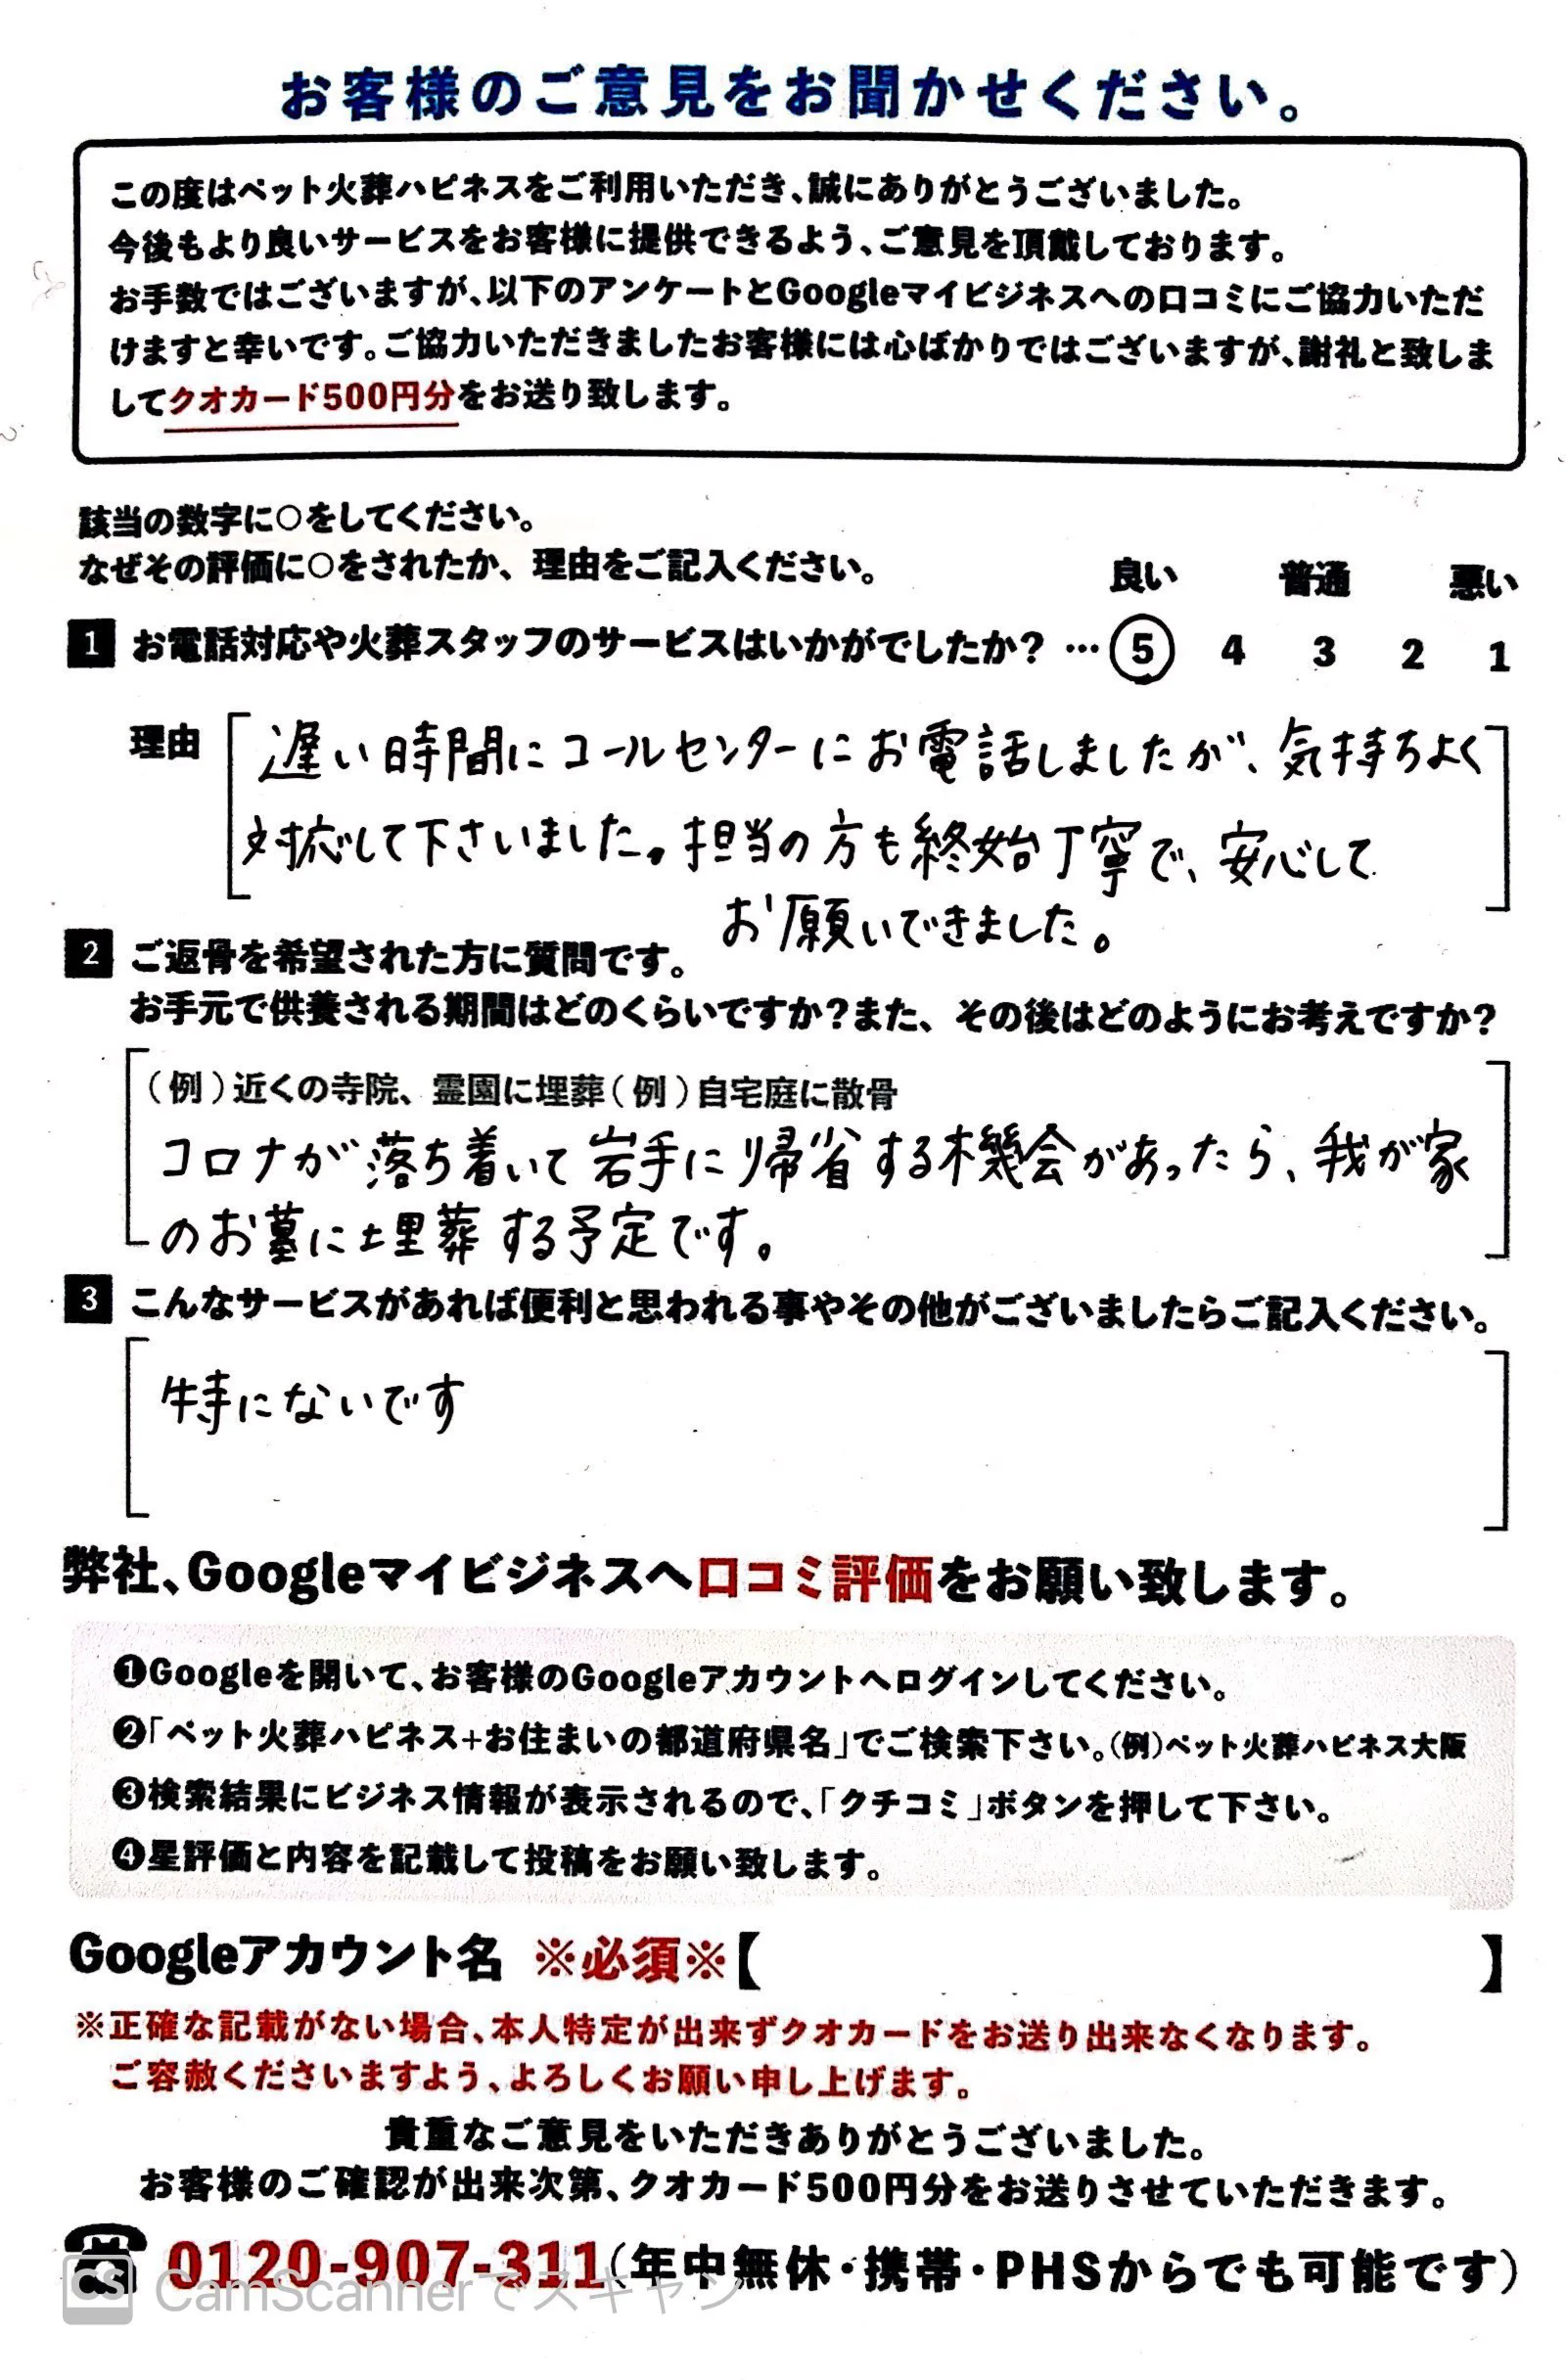 お客様のご意見をお聞かせください。
この度はペット火葬ハピネスをご利用いただき、誠にありがとうございました。
今後もより良いサービスをお客様に提供できるよう、ご意見を頂戴しております。
お手数ではございますが、以下のアンケートとGoogleマイビジネスへの口コミにご協力いただ
けますと幸いです。ご協力いただきましたお客様には心ばかりではございますが、謝礼と致しま
してクオカード500円分をお送り致します。
該当の数字に○をしてください。
なぜその評価に○をされたか、理由をご記入ください。
良い 普通 悪い
1 お電話対応や火葬スタッフのサービスはいかがでしたか? … 5 4 3 2 1
理由 遅い時間にコールセンターにお電話しましたが、気持ちよく
対応して下さいました。担当の方も終始丁寧で、安心して
お願いできました。
2 ご返骨を希望された方に質問です。
お手元で供養される期間はどのくらいですか?また、その後はどのようにお考えですか?
(例)近くの寺院、霊園に埋葬(例)自宅庭に散骨
コロナが落ち着いて岩手に帰省する機会があったら、我が家
のお墓に埋葬する予定です。
3 こんなサービスがあれば便利と思われる事やその他がございましたらご記入ください。
特にないです
弊社、Googleマイビジネスへ口コミ評価をお願い致します。
❶Googleを開いて、お客様のGoogleアカウントへログインしてください。
❷「ペット火葬ハピネス+お住まいの都道府県名」でご検索下さい。(例)ペット火葬ハピネス大阪
❸検索結果にビジネス情報が表示されるので、「クチコミ」ボタンを押して下さい。
❹星評価と内容を記載して投稿をお願い致します。
Googleアカウント名 ※必須※【 】
※正確な記載がない場合、本人特定が出来ずクオカードをお送り出来なくなります。
ご容赦くださいますよう、よろしくお願い申し上げます。
貴重なご意見をいただきありがとうございました。
お客様のご確認が出来次第、クオカード500円分をお送りさせていただきます。
0120-907-311(年中無休・携帯・PHSからでも可能です)
CS CamScannerでスキャン